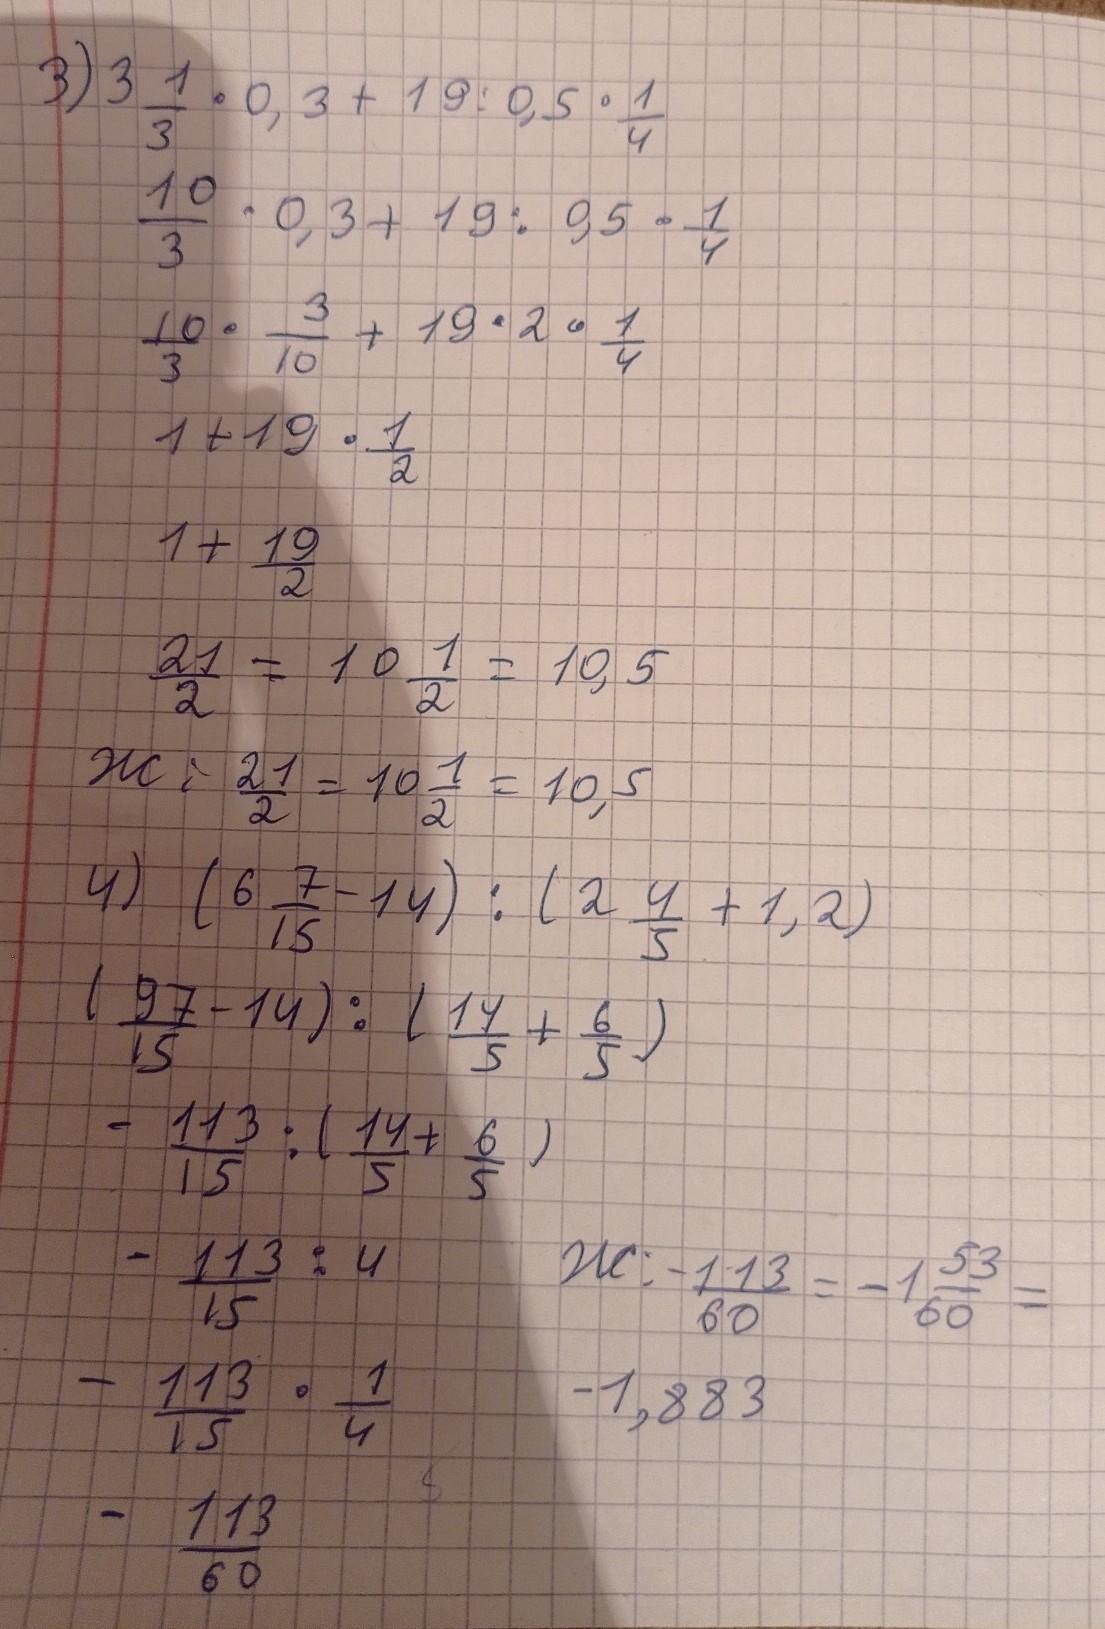 3) 3 1/3 · 0,3 + 19 : 0,5 · 1/4
10/3 · 0,3 + 19 : 0,5 · 1/4
10/3 · 3/10 + 19 · 2 · 1/4
1 + 19 · 1/2
1 + 19/2
21/2 = 10 1/2 = 10,5
Ж: 21/2 = 10 1/2 = 10,5
4) (6 7/15 - 14) : (2 4/5 + 1,2)
(97/15 - 14) : (14/5 + 6/5)
- 113/15 : (14/5 + 6/5)
- 113/15 : 4
- 113/15 · 1/4
- 113/60
Ж: - 113/60 = -1 53/60 =
-1,883